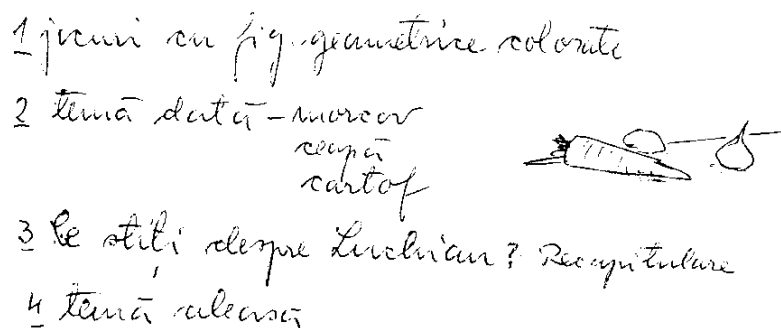 1 jocuri cu fig. geometrice colorate
2 temă dată - morcov
ceapă
cartof
3 Ce stiți despre Luchian? Recapitulare
4 temă aleasă